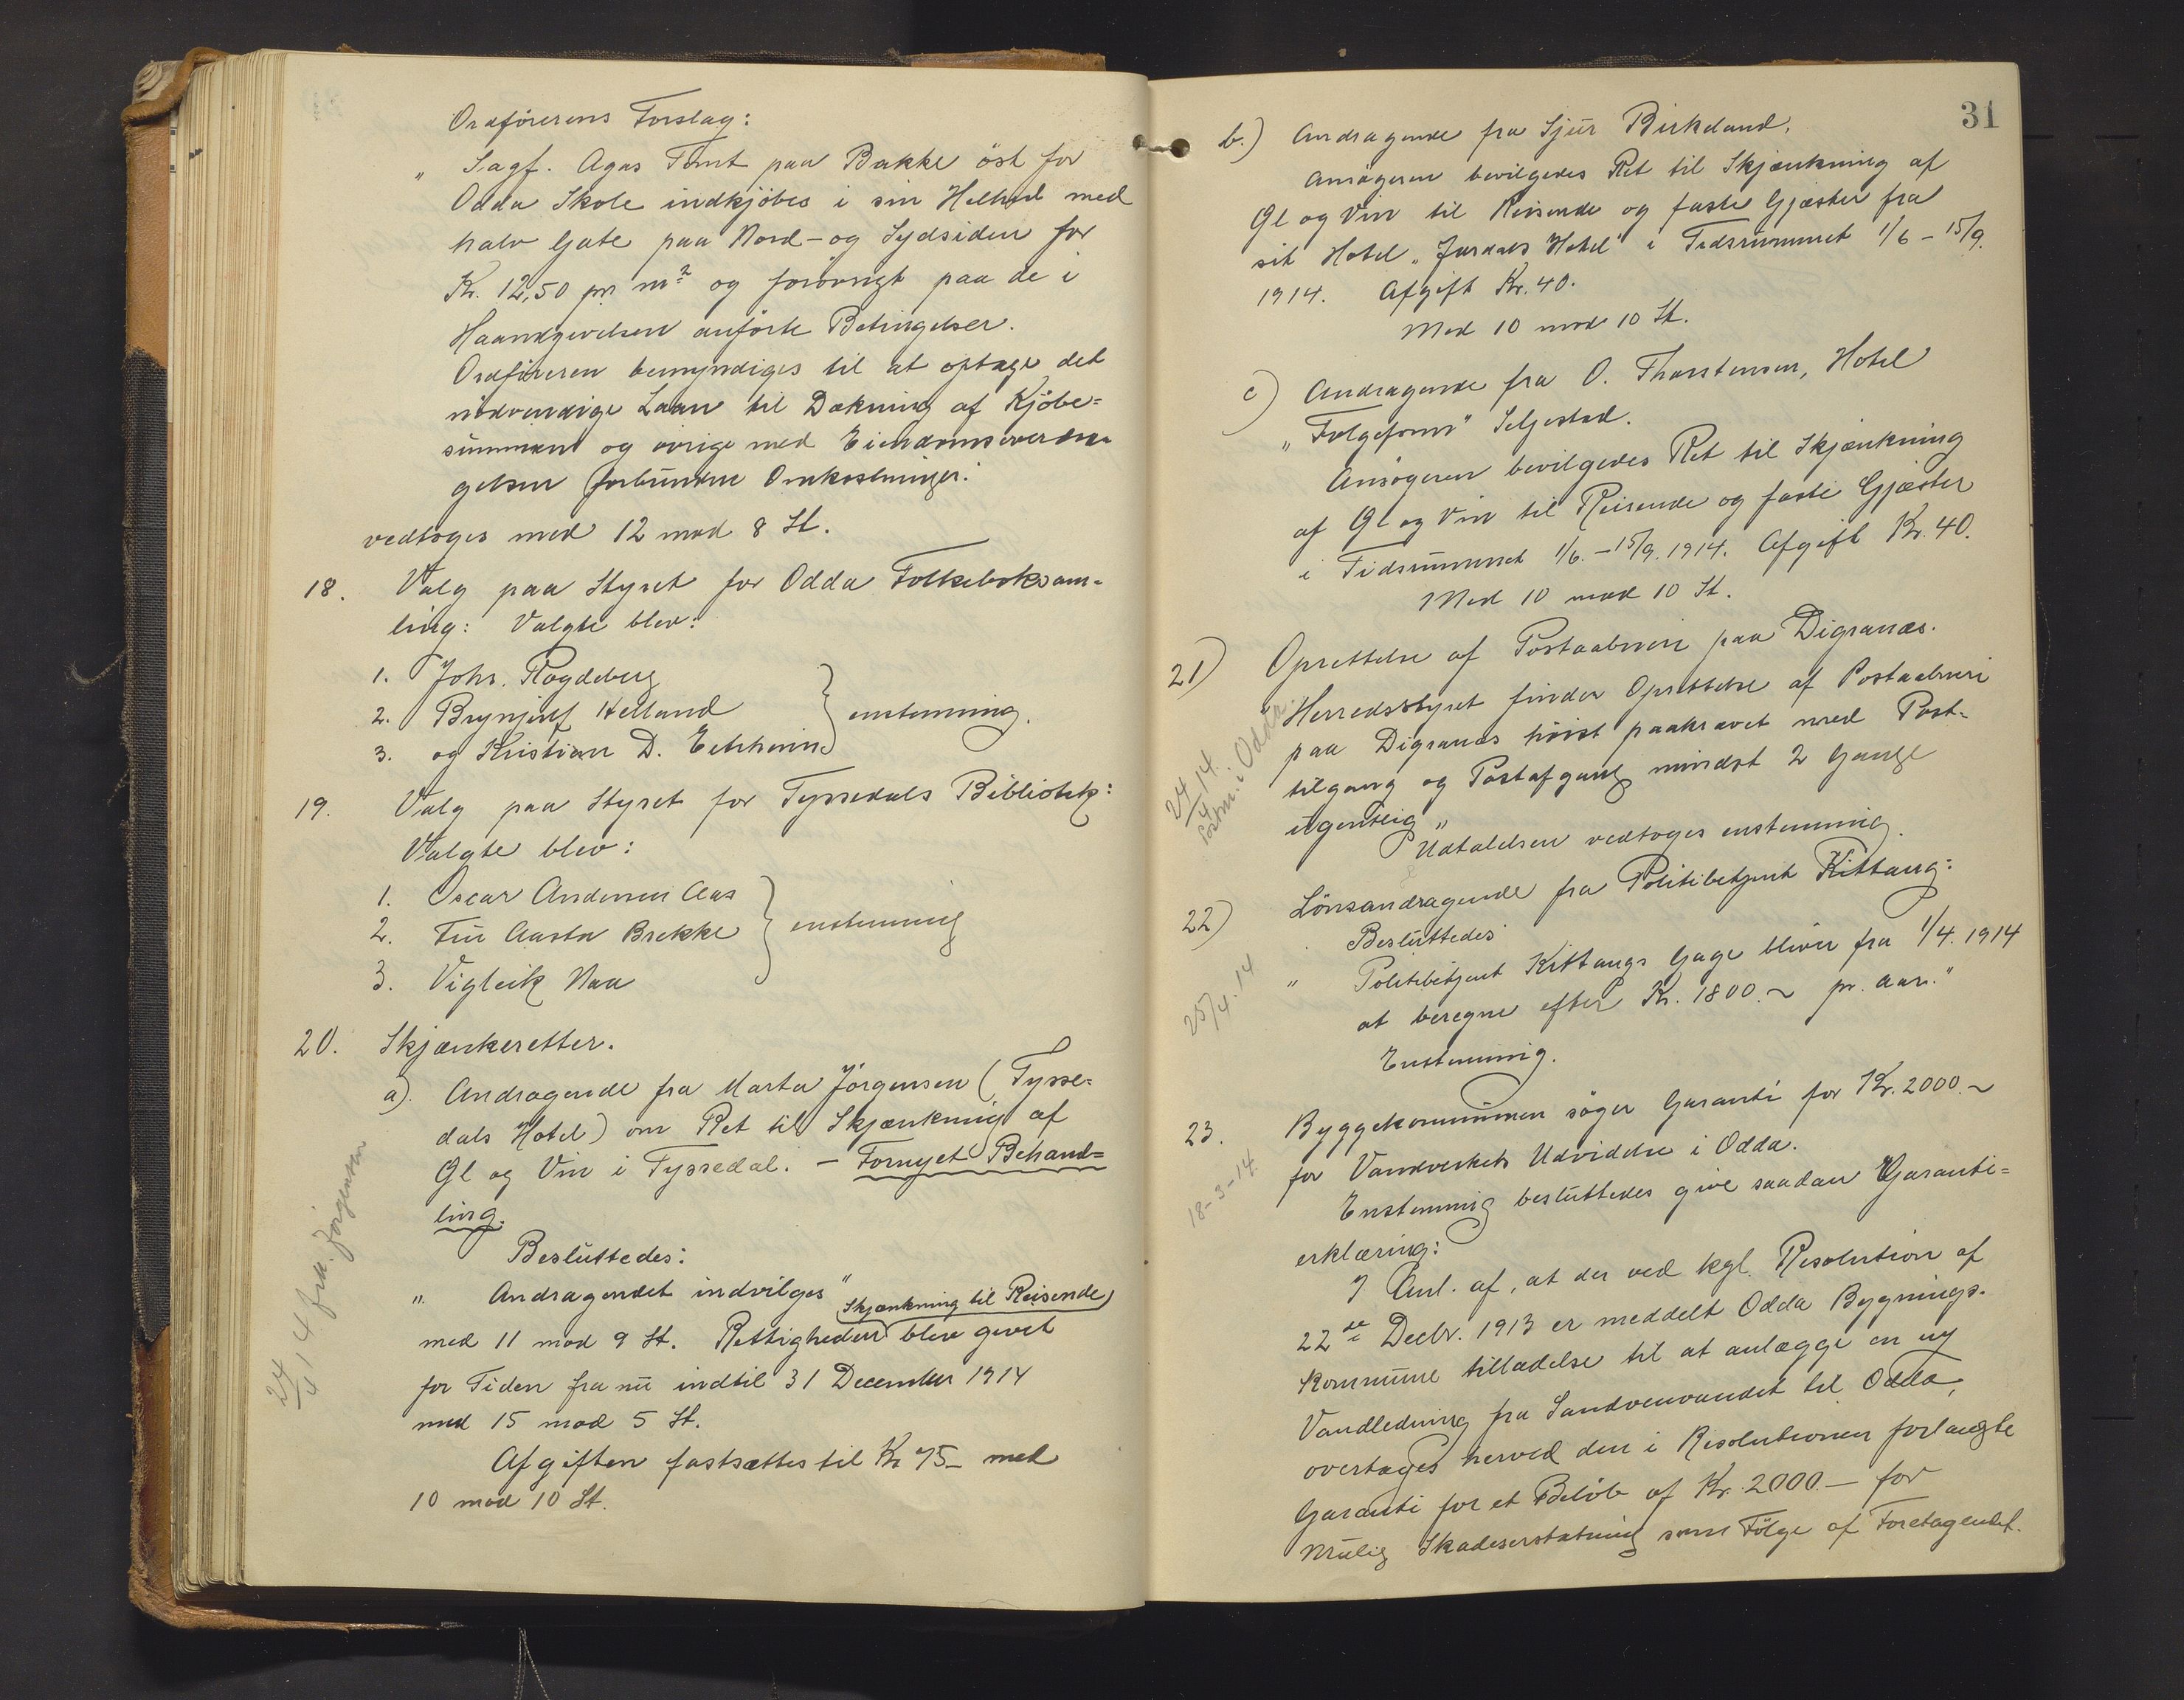 Ordförerens Forslag:
„ Sagf. Agas Tomt paa Bakke öst for
Odda Skole indkjöbes i sin Helhed med
halv Gate paa Nord- og Sydsiden for
Kr. 12,50 pr m² og forövrigt paa de i
Haandgivelsen anförte Betingelser.
Ordföreren bemyndiges til at optage det
nödvendige Laan til Dækning af Kjöbe=
summen og övrige med Eiendomsoverdra-
gelsen forbundne Omkostninger."
vedtoges med 12 mod 8 St.
18. Valg paa Styret for Odda Folkeboksam-
ling: Valgte blev:
1. Johs. Rogdeberg
2. Brynjulf Helland
3. og Kristian D. Eitrheim
enstemmig.
19. Valg paa Styret for Tyssedals Bibliotek:
Valgte blev:
1. Oscar Andersen Aas
2. Fru Aasta Brekke
3. Vigleik Naa
enstemmig
20. Skjænkeretter.
a). Andragende fra Marta Jörgensen (Tysse=
dals Hotel) om Ret til Skjænkning af
Öl og Vin i Tyssedal. – Fornyet Behand=
ling.
24/4 14 fru. Jörgensen
Besluttedes:
„ Andragendet indvilges"
Skjænkning til Reisende
med 11 mod 9 St. Rettigheden blev givet
for Tiden fra nu indtil 31 December 1914
med 15 mod 5 St.
Afgiften fastsættes til Kr 75- med
10 mod 10 St.
31
b.) Andragende fra Sjur Birkeland.
Ansögeren bevilgedes Ret til Skjænkning af
Öl og Vin til Reisende og faste Gjæster fra
sit Hotel „Jordals Hotel" i Tidsrummet 1/6 – 15/9.
1914. Afgift Kr. 40.
Med 10 mod 10 St.
c) Andragende fra O. Thorstensen, Hotel
„Folgefonn" Seljestad.
Ansögeren bevilgedes Ret til Skjænkning
af Öl og Vin til Reisende og faste Gjæster
i Tidsrummet 1/6. – 15/9. 1914. Afgift Kr. 40.
Med 10 mod 10 St.
21) Oprettelse af Postaabneri paa Digranæs.
„Herredsstyret finder Oprettelse af Postaabneri
paa Digranæs höist paakrævet med Post-
tilgang og Postafgang mindst 2 Gange
ugentlig"
24/4 14. Postm. i Odda.
Udtalelsen vedtoges enstemmig.
22) Lönsandragende fra Politibetjent Kittang:
Besluttedes
„ Politibetjent Kittangs Gage bliver fra 1/4. 1914
at beregne efter Kr. 1800.~ pr. aar."
25/4. 14
Enstemmig.
23. Byggekommunen söger Garanti for Kr. 2000.~
for Vandverkets Udvidelse i Odda.
18-3-14.
Enstemmig besluttedes give saadan Garanti=
erklæring:
I Anl. af, at der ved kgl. Resolution af
22de Decbr. 1913 er meddelt Odda Bygnings-
kommune tilladelse til at anlægge en ny
Vandledning fra Sandvenvandet til Odda,
overtages herved den i Resolutionen forlangte
Garanti for et Belöb af Kr. 2000.– for
mulig Skadeserstatning som Fölge af Foretagendet.